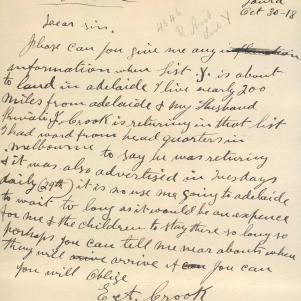 Laura
Oct 30-18
Dear Sir.
Please can you give me any
information when list Y. is about
to land in adelaide I live nearly 200
miles from adelaide & my Husband
Private J. Crook is returing in that list
I had word from head quarters in
Melbourne to say he was returing
& it was also advertized in Tuesdays
daily (29th) it is no use me going to adelaide
to wait to long as it would be an expence
for me & the children to stay there so long so
perhaps you can tell me near abouts when
they will arrive if you can
you will oblige
E A. Crook